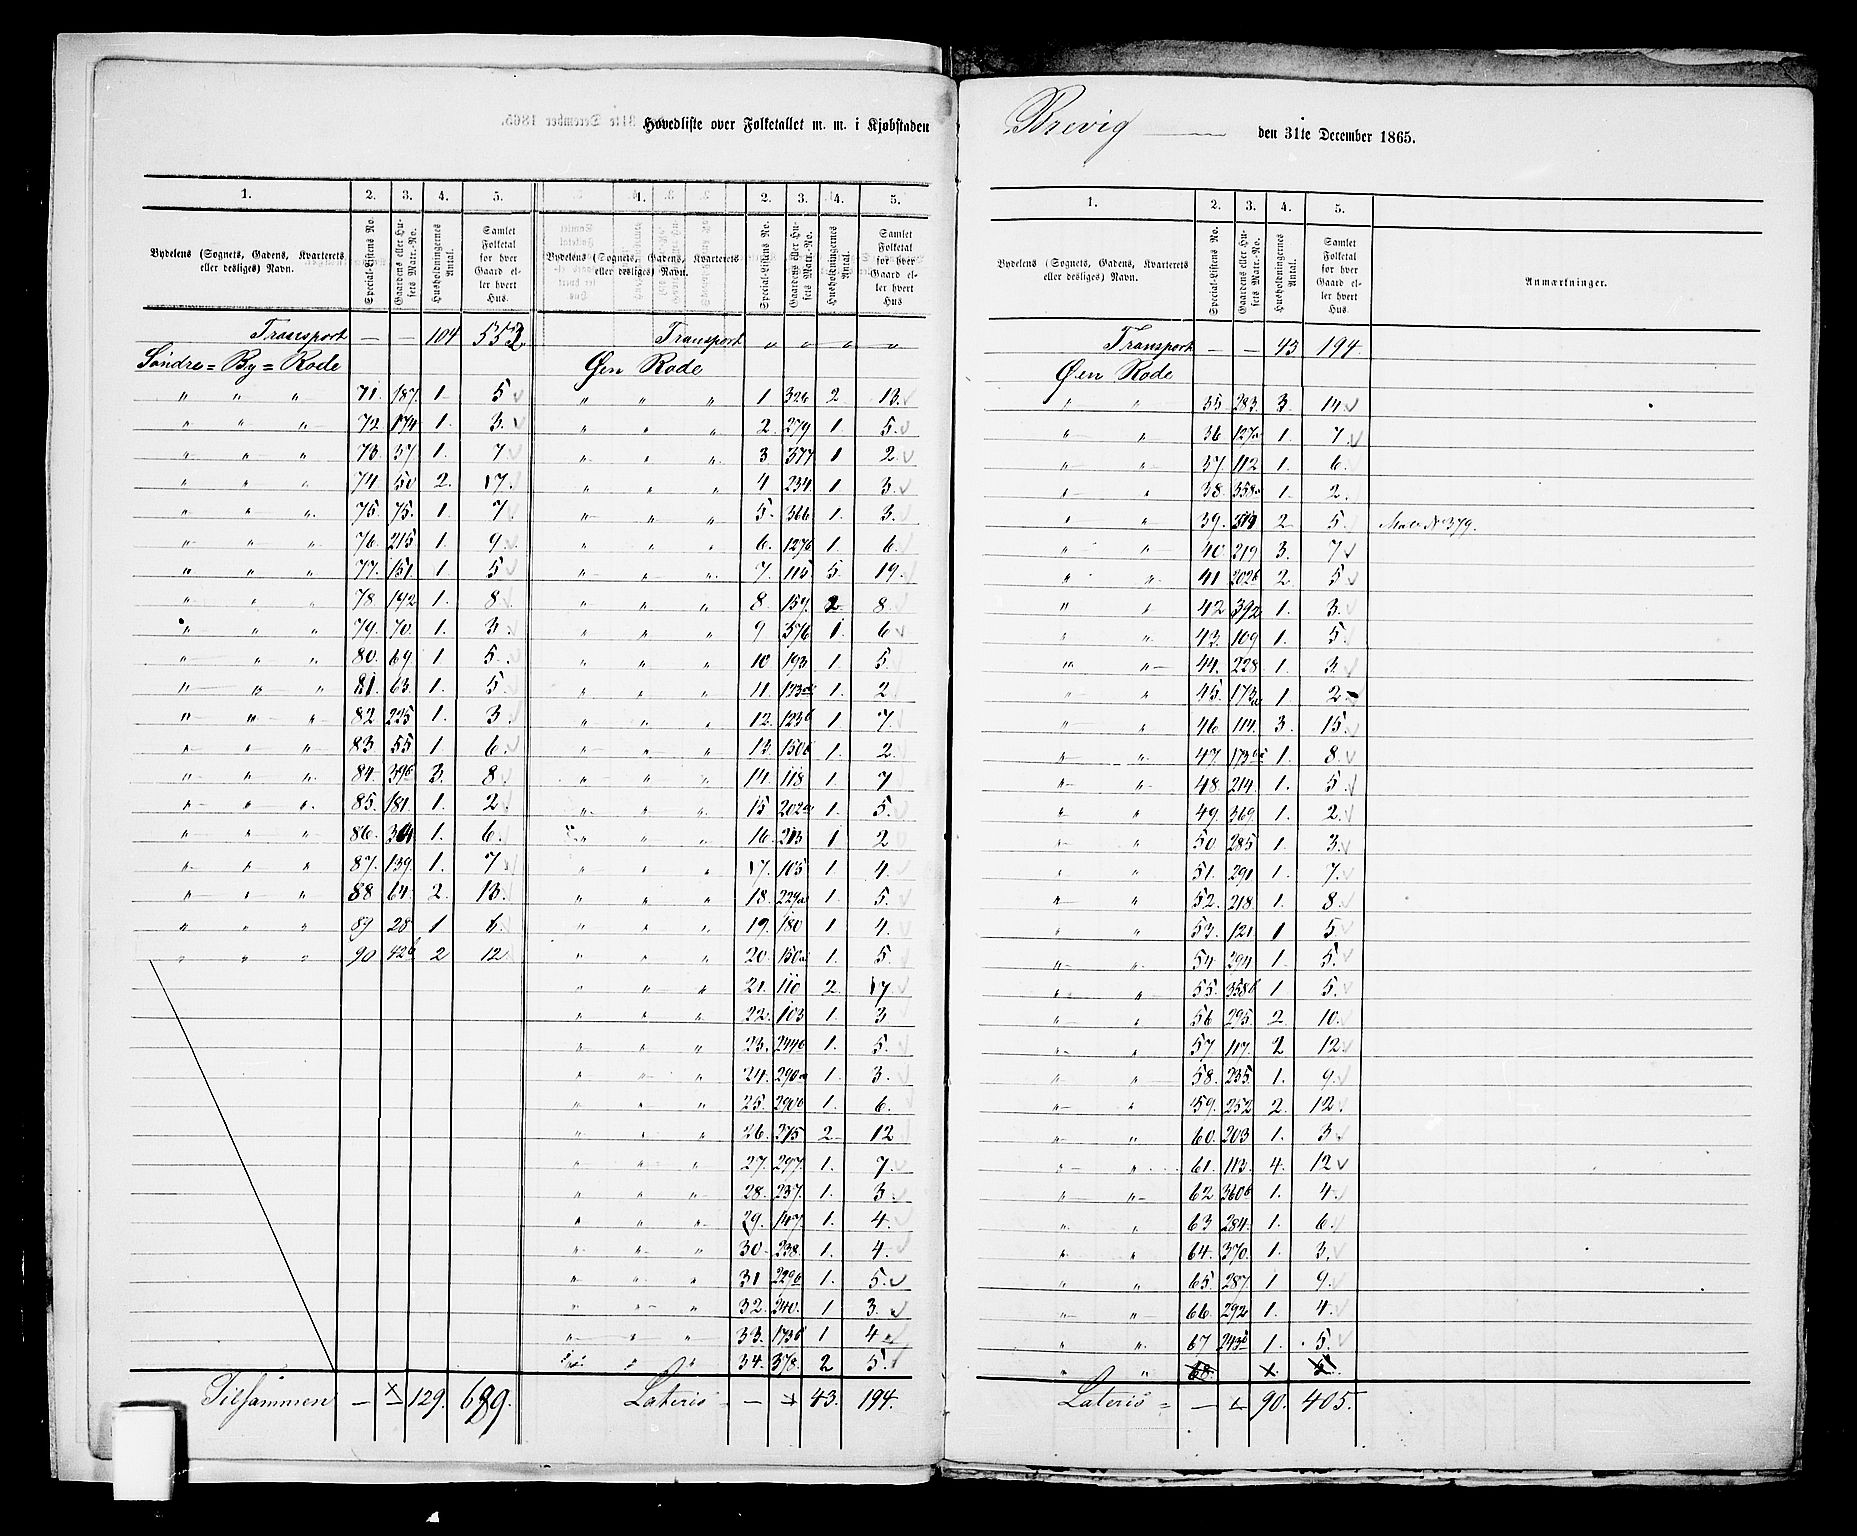 Hovedliste over Folketallet m. m. i Kjøbstaden Brevig den 31te December 1865.
1. 2. 3. 4. 5.
Bydelens (Sognets, Gadens, Kvarterets eller desliges) Navn. Special-Listens No. Gaardens eller Husets Matr.-No. Husholdningernes Antal. Samlet Folketal for hver Gaard eller hvert Hus.
Transport — — 104 552
Søndre=By=Rode
" " " 71. 187. 1. 5
" " " 72 174 1. 3.
" " " 73. 37. 1. 7
" " " 74. 50 2. 17.
" " " 75. 75. 1. 7
" " " 76. 215 1. 9.
" " " 77. 151. 1. 5
" " " 78 192 1. 8
" " " 79. 70. 1. 3.
" " " 80. 69. 1 5.
" " " 81. 63. 1. 5.
" " " 82 225 1. 3.
" " " 83. 55 1 6.
" " " 84. 396 3. 8
" " " 85. 181. 1. 2
" " " 86. 1. 6.
" " " 87. 139. 1. 7
" " " 88 64. 2. 13.
" " " 89 28 1 6.
" " " 90 42b 2 12
Tilsammen — 129. 689.
1. 2. 3. 4. 5.
Bydelens (Sognets, Gadens, Kvarterets eller desliges) Navn. Special-Listens No. Gaardens eller Husets Matr.-No. Husholdningernes Antal. Samlet Folketal for hver Gaard eller hvert Hus
Transport " " " "
Øen Rode
" " " 1 326 2 13.
" " " 2. 279 1. 5.
" " " 3 377 1 2.
" " " 4 234. 1 3.
" " " 5. 366 1. 3.
" " " 6. 127b 1. 6.
" " " 7. 115 5. 19.
" " " 8. 159. 2 8.
" " " 9 376 1. 6
" " " 10. 193 1. 5.
" " " 11. 123a 1. 2
" " " 12. 123b 1 7.
" " " 13. 150b 1. 2
" " " 14. 118 1. 7
" " " 15 202a 1. 5.
" " " 16. 213 1 2
" " " 17. 105 1 4.
" " " 18. 229a 1. 5.
" " " 19. 180 1 4.
" " " 20. 150a 1. 5
" " " 21. 110 2. 17
" " " 22. 103 1. 3
" " " 23. 244b 1. 5.
" " " 24. 290a 1. 3.
" " " 25. 290b 1. 6.
" " " 26. 275 2 12
" " " 27. 297. 1. 7.
" " " 28. 237. 1. 3
" " " 29. 147. 1. 4.
" " " 30. 238. 1. 4.
" " " 31 229b 1. 5.
" " " 32. 240. 1 3.
" " " 33. 173b 1 4
" " " 34. 378. 2 5
Lateris — 43. 194.
1. 2. 3. 4. 5.
Bydelens (Sognets, Gadens, Kvarterets eller desliges) Navn. Special-Listens No. Gaardens eller Husets Matr.-No. Husholdningernes Antal. Samlet Folketal for hver Gaard eller hvert Hus Anmærkninger.
Transport — — 43 194.
Øen Rode
" " 35. 283. 3 14
" " 36 127a 1. 7
" " 37. 112 1. 6.
" " 38. 358a 1. 2.
" " 39. 2 5. Mat. No 379.
" " 40. 219. 3. 7
" " 41 202b 2 5
" " 42 392 1. 3.
" " 43. 109 1. 5.
" " 44. 228. 1. 3.
" " 45. 173a 1 2
" " 46. 114. 3. 15.
" " 47. 1. 8.
" " 48. 214. 1. 5.
" " 49. 369. 1. 2.
" " 50 285 1. 3.
" " 51. 291 1. 7.
" " 52. 218. 1. 8
" " 53. 121 1 5
" " 54 294 1. 5.
" " 55. 358b 1 5.
" " 56 295. 2. 10.
" " 57 117. 2 12
" " 58. 235. 1. 9.
" " 59. 252 2. 12.
" " 60. 203 1. 3
" " 61. 113. 4. 12
" " 62 360b 1. 4.
" " 63 284. 1. 6.
" " 64. 370. 1. 3.
" " 65. 287. 1 9.
" " 66. 292 1. 4.
" " 67 243b 1. 5.
" " 68
Lateris = — 90. 405.